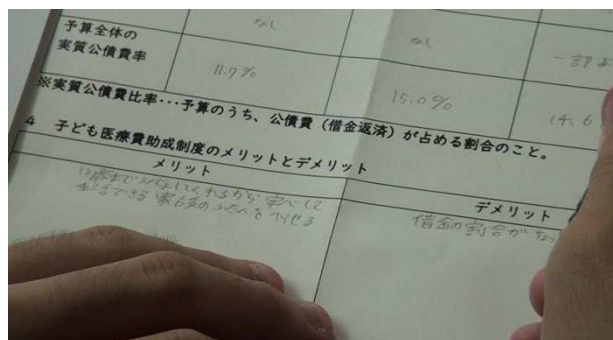 なし
なし
一部
予算全体の
実質公債費率
11.7%
15.0%
14.6
※実質公債費比率･･･予算のうち、公債費（借金返済）が占める割合のこと。
4 子ども医療費助成制度のメリットとデメリット
メリット
デメリット
してくれるから 安心して
生活できる 家計の をへらせる
借金の割合が